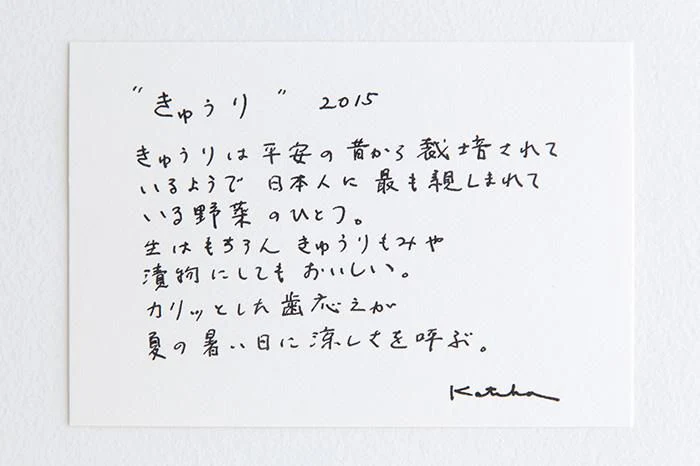 "きゅうり" 2015
きゅうりは平安の昔から栽培されて
いるようで 日本人に最も親しまれて
いる野菜のひとつ。
生はもちろん きゅうりもみや
漬物にしてもおいしい。
カリッとした歯応えが
夏の暑い日に涼しさを呼ぶ。